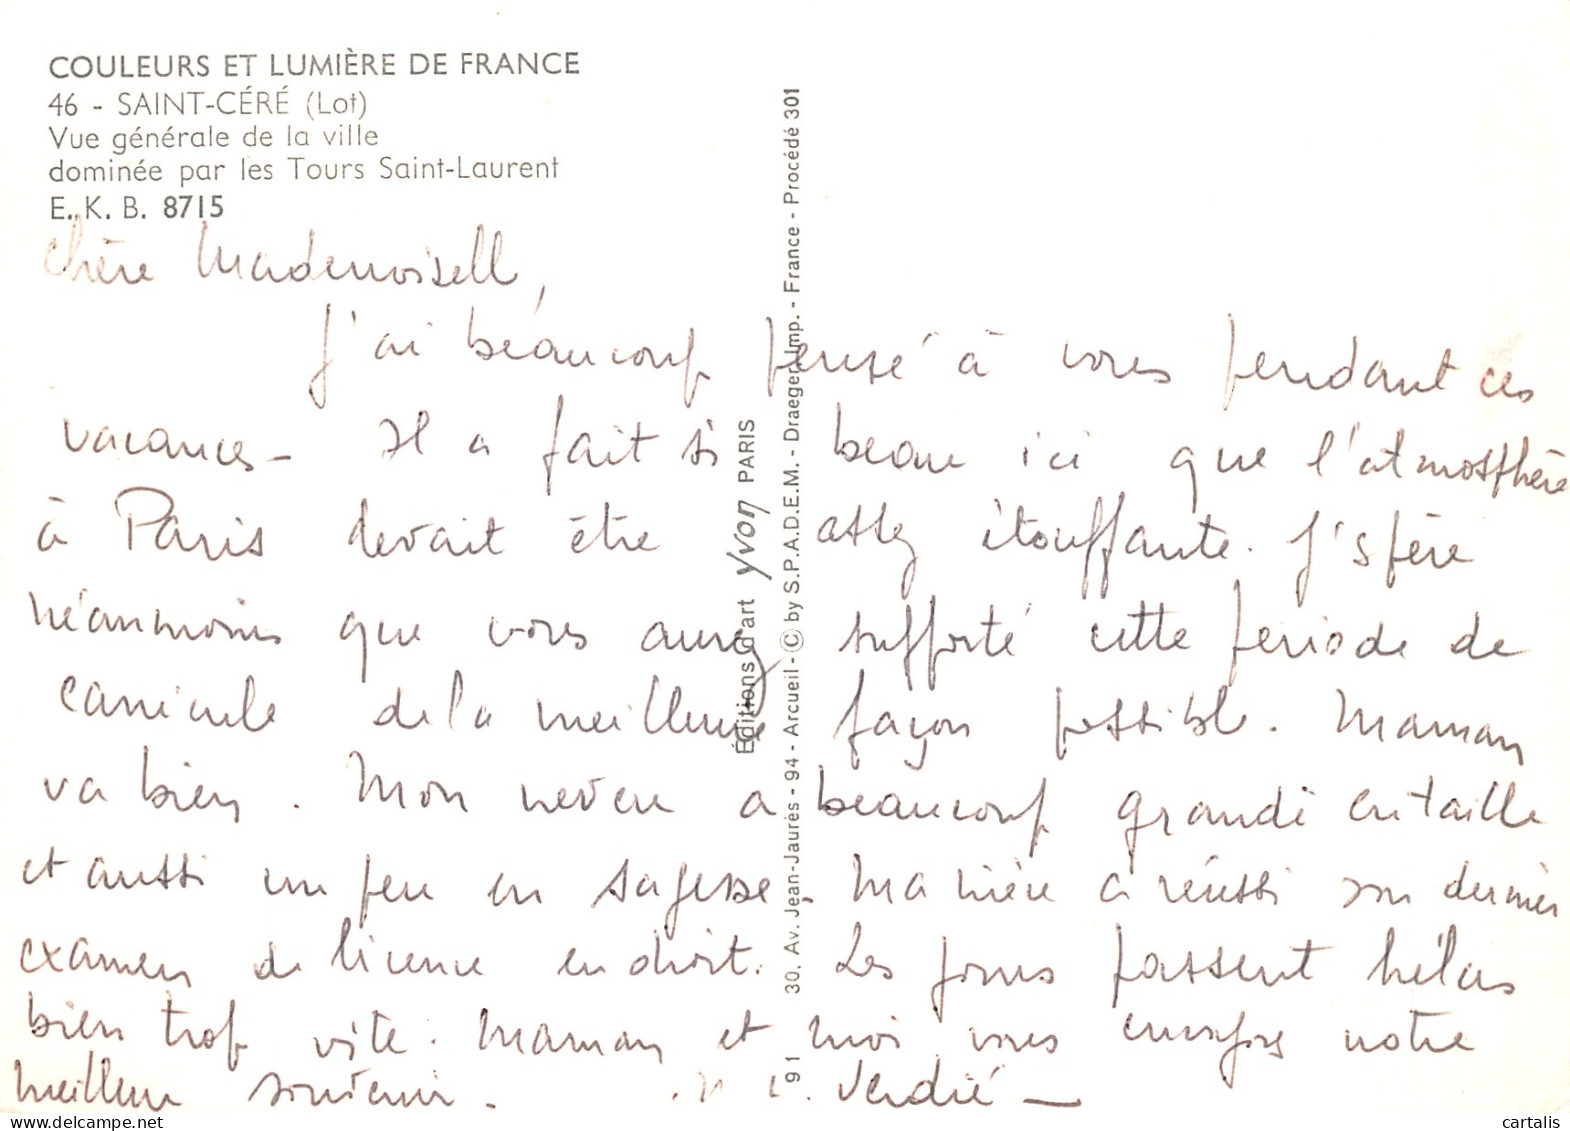 COULEURS ET LUMIÈRE DE FRANCE
46 - SAINT-CÉRÉ (Lot)
Vue générale de la ville
dominée par les Tours Saint-Laurent
E. K. B. 8715
Chère Mademoiselle,
J'ai beaucoup pensé à vous pendant ces
vacances - Il a fait si beau ici que l'atmosphère
à Paris devait être assez étouffante. J'espère
néanmoins que vous aurez supporté cette periode de
canicule de la meilleure façon possible. Maman
va bien. Mon neveu a beaucoup grandi en taille
et aussi un peu en sagesse - Ma nièce a réussi son dernier
examen de licence en droit. Les jours passent hélas
bien trop vite. Maman et moi vous envoyons notre
meilleur souvenir -
Verdié
Éditions d'art yvon PARIS
91 30, Av. Jean-Jaurès - 94 - Arcueil - © by S.P.A.D.E.M. - Draeger Imp. - France - Procédé 301
cartalis
delcampe.net